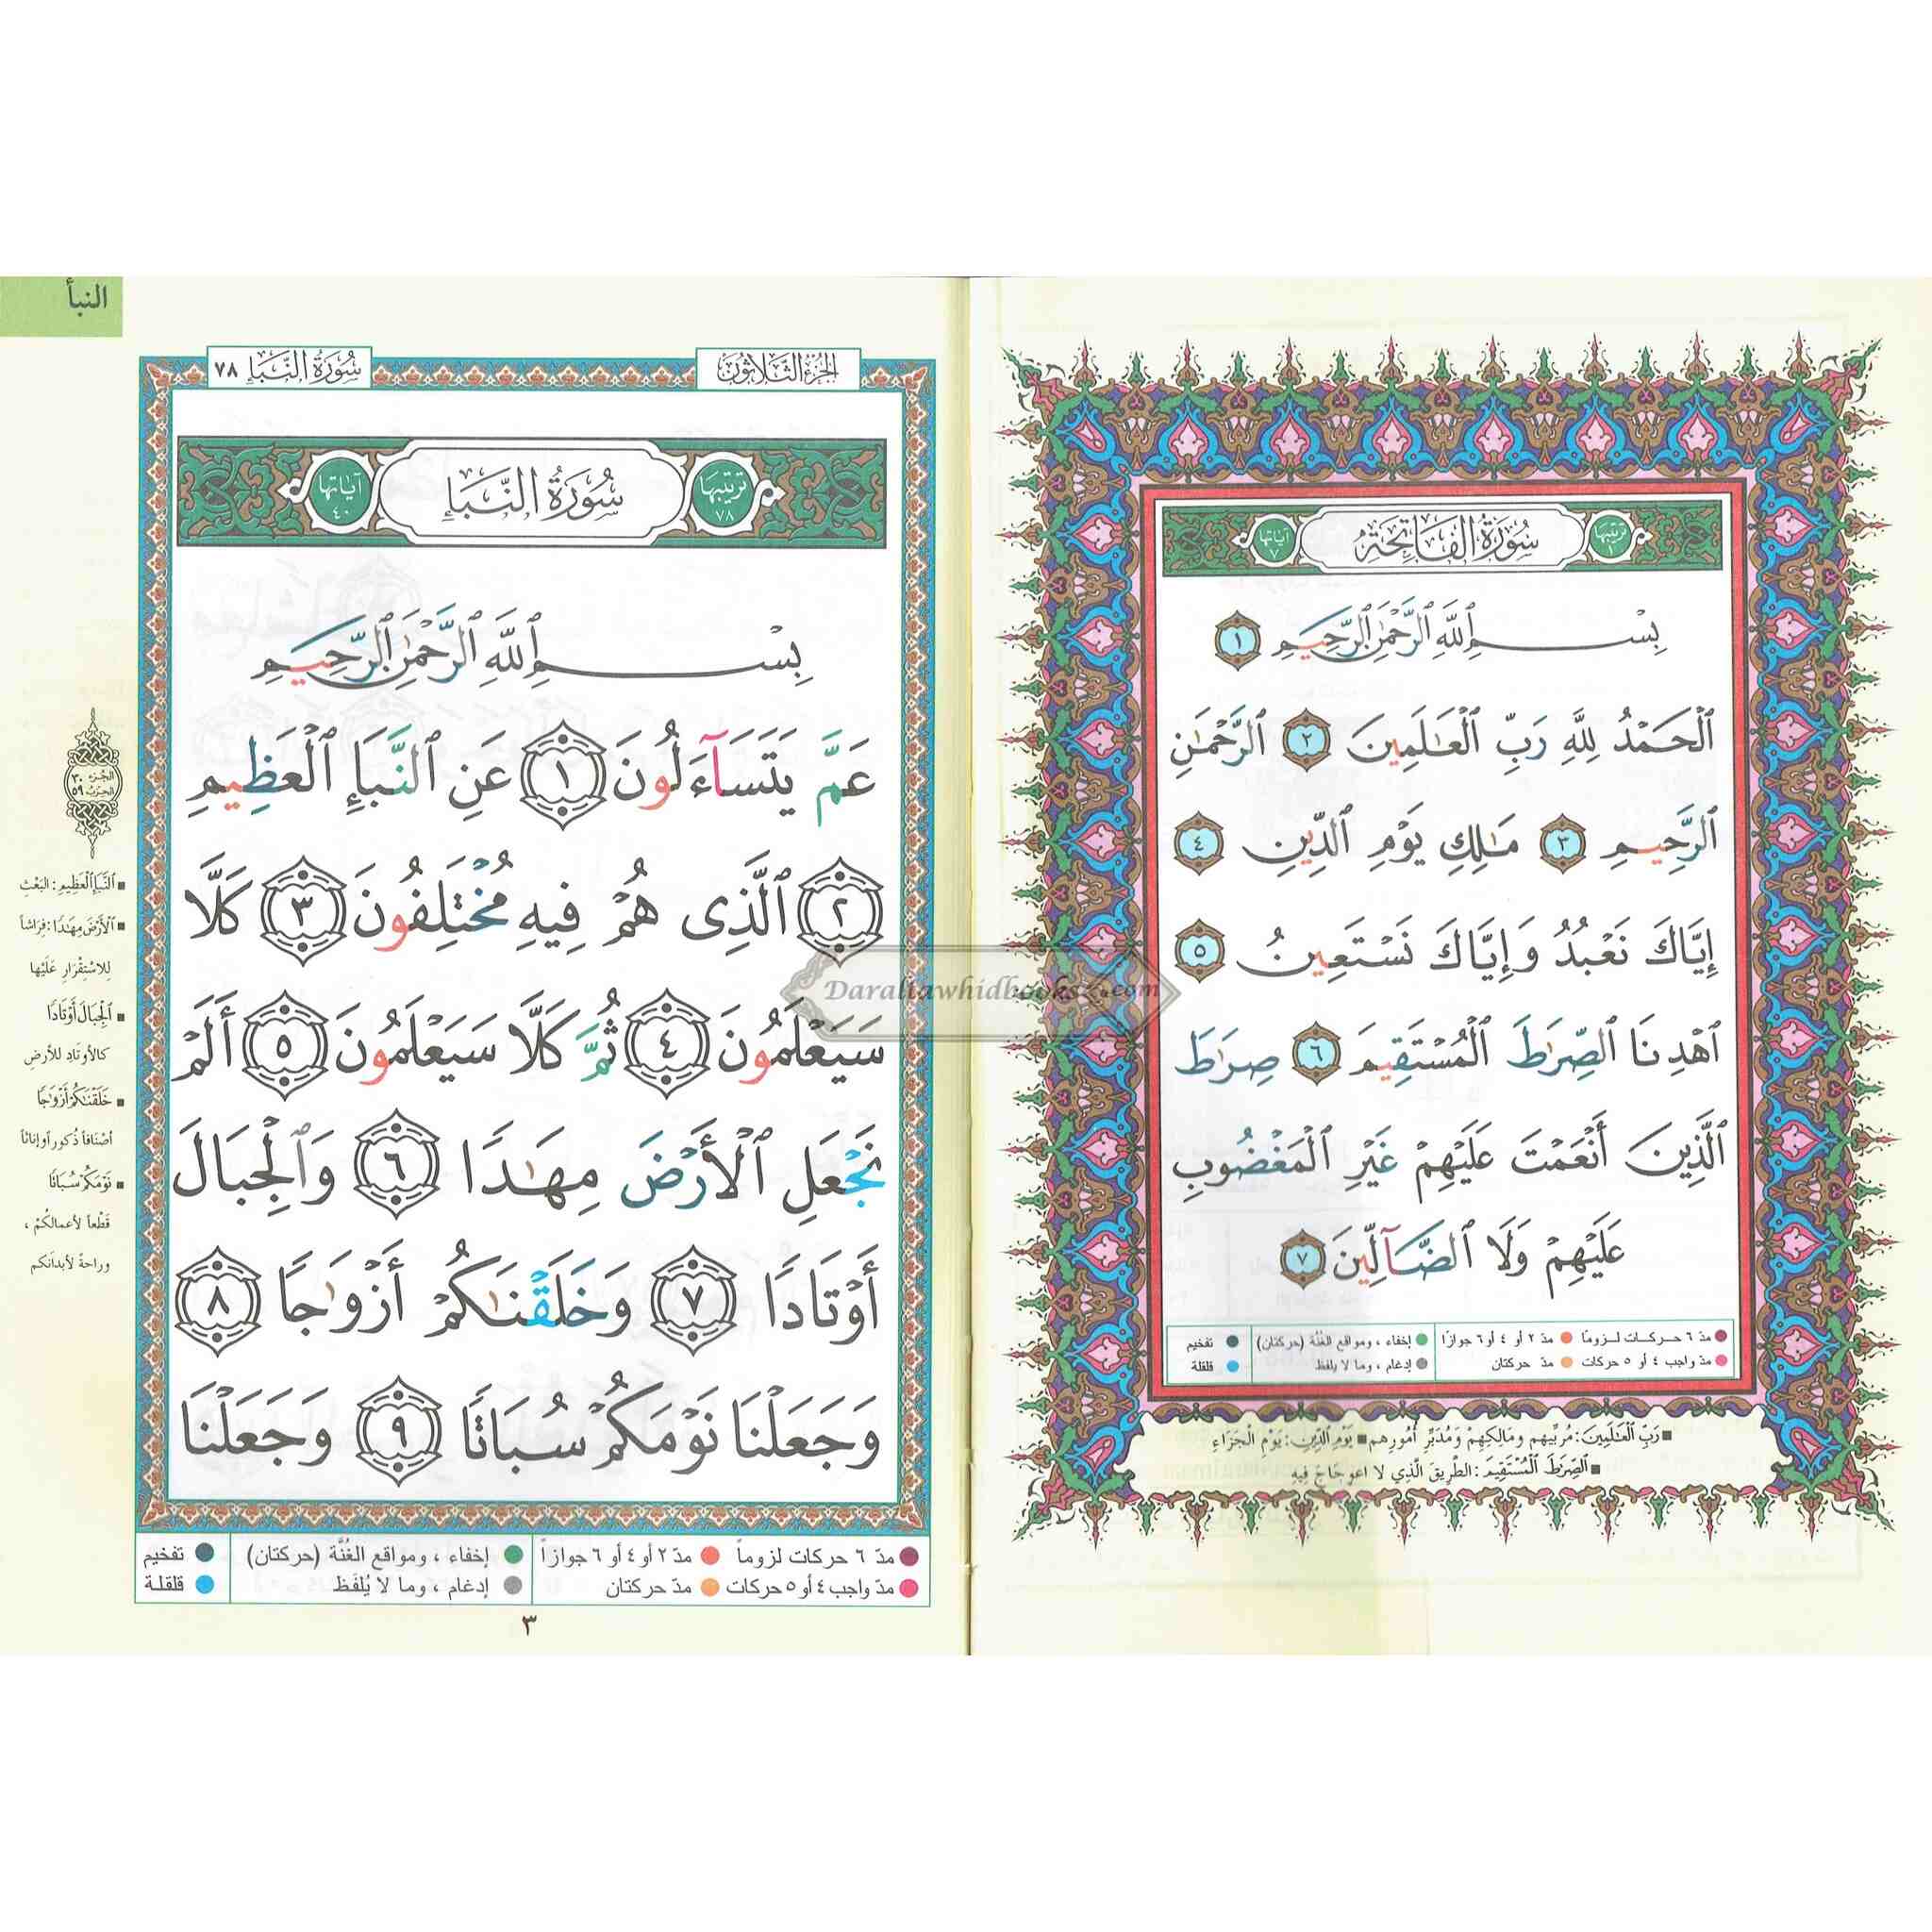 سُورَةُ الْفَاتِحَةِ
ترتيبها ١
آياتها ٧
بِسْمِ ٱللَّهِ ٱلرَّحْمَٰنِ ٱلرَّحِيمِ ١
ٱلْحَمْدُ لِلَّهِ رَبِّ ٱلْعَٰلَمِينَ ٢ ٱلرَّحْمَٰنِ
ٱلرَّحِيمِ ٣ مَٰلِكِ يَوْمِ ٱلدِّينِ ٤
إِيَّاكَ نَعْبُدُ وَإِيَّاكَ نَسْتَعِينُ ٥
ٱهْدِنَا ٱلصِّرَٰطَ ٱلْمُسْتَقِيمَ ٦ صِرَٰطَ
ٱلَّذِينَ أَنْعَمْتَ عَلَيْهِمْ غَيْرِ ٱلْمَغْضُوبِ
عَلَيْهِمْ وَلَا ٱلضَّآلِّينَ ٧
مدّ ٦ حركات لزوما مدّ ٢ أو ٤ أو ٦ جوازا إخفاء ، ومواقع الغُنَّة (حركتان) تفخيم
مدّ واجب ٤ أو ٥ حركات مدّ حركتان إدغام ، وما لا يلفظ قلقلة
رَبِّ ٱلْعَٰلَمِينَ: مُرَبِّيهِم ومَالِكِهِمْ وَمُدَبِّرِ أُمُورِهِم يَوْمِ ٱلدِّينِ: يَوْمِ الجَزَاءِ
ٱلصِّرَٰطَ ٱلْمُسْتَقِيمَ: الطَّرِيقَ الَّذِي لا اعوِجَاجَ فِيه
النبأ
الجُزءُ الثَّلَاثُون
سُورَةُ النَّبَإِ ٧٨
ترتيبها ٧٨
سُورَةُ النَّبَإِ
آياتها ٤٠
بِسْمِ ٱللَّهِ ٱلرَّحْمَٰنِ ٱلرَّحِيمِ
عَمَّ يَتَسَآءَلُونَ ١ عَنِ ٱلنَّبَإِ ٱلْعَظِيمِ
٢ ٱلَّذِى هُمْ فِيهِ مُخْتَلِفُونَ ٣ كَلَّا
سَيَعْلَمُونَ ٤ ثُمَّ كَلَّا سَيَعْلَمُونَ ٥ أَلَمْ
نَجْعَلِ ٱلْأَرْضَ مِهَٰدًا ٦ وَٱلْجِبَالَ
أَوْتَادًا ٧ وَخَلَقْنَٰكُمْ أَزْوَٰجًا ٨
وَجَعَلْنَا نَوْمَكُمْ سُبَاتًا ٩ وَجَعَلْنَا
الجزء ٣٠
الحزب ٥٩
ٱلنَّبَإِ ٱلْعَظِيمِ: البَعْثِ
ٱلْأَرْضَ مِهَٰدًا: فِرَاشاً
لِلاسْتِقْرَارِ عَلَيْها
ٱلْجِبَالَ أَوْتَادًا
كالأوتَادِ للأرضِ
خَلَقْنَٰكُمْ أَزْوَٰجًا
أصْنَافاً ذُكُوراً وإناثاً
نَوْمَكُمْ سُبَاتًا
قَطْعاً لأعمالِكُمْ ،
وراحةً لأبدَانكم
مدّ ٦ حركات لزوماً مدّ ٢ أو ٤ أو ٦ جوازاً إخفاء ، ومواقع الغُنَّة (حركتان) تفخيم
مدّ واجب ٤ أو ٥ حركات مدّ حركتان إدغام ، وما لا يُلفَظ قلقلة
٣
Daraltawhidbooks.com